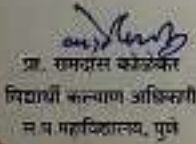 प्रा. रामदास कोळेकर
विद्यार्थी कल्याण अधिकारी
म.प.महाविद्यालय, पुणे